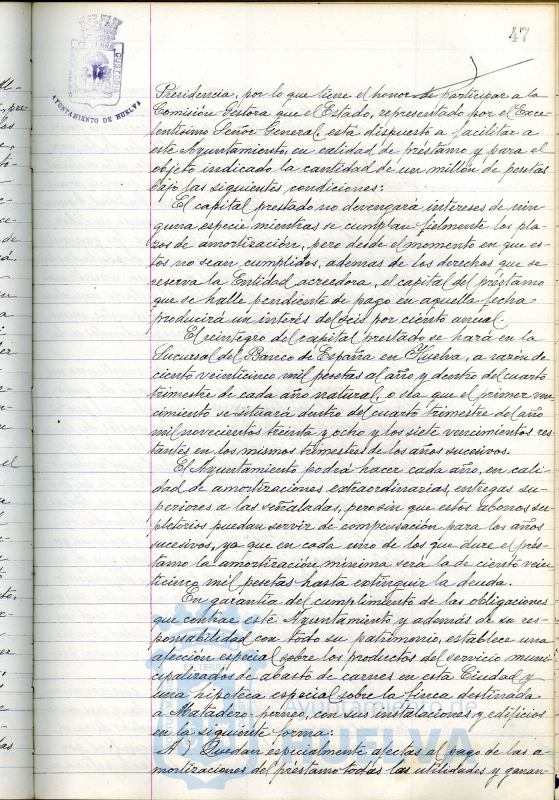 47
AYUNTAMIENTO DE HUELVA
Presidencia, por lo que tiene el honor de participar a la
Comisión Gestora que el Estado, representado por el Exce-
lentísimo Señor General, está dispuesto a facilitar a
este Ayuntamiento, en calidad de préstamo y para el
objeto indicado la cantidad de un millón de pesetas
bajo las siguientes condiciones:
El capital prestado no devengará intereses de nin
guna especie mientras se cumplan fielmente los pla
zos de amortización, pero desde el momento en que es-
tos no sean cumplidos, ademas de los derechos que se
reserva la Entidad acreedora, el capital del préstamo
que se halle pendiente de pago en aquella fecha
producirá un interés del seis por ciento anual.
El reintegro del capital prestado se hará en la
Sucursal del Banco de España en Huelva, a razón de
ciento veinticinco mil pesetas al año y dentro del cuarto
trimestre de cada año natural, o sea que el primer ven
cimiento se situará dentro del cuarto trimestre del año
mil novecientos treinta y ocho y los siete vencimientos res
tantes en los mismos trimestres de los años sucesivos.
El Ayuntamiento podrá hacer cada año, en cali-
dad de amortizaciones extraordinarias, entregas su-
periores a las señaladas, pero sin que estos abonos su-
pletorios puedan servir de compensación para los años
sucesivos, ya que en cada uno de los que dure el prés-
tamo la amortización mínima será la de ciento vein
ticinco mil pesetas hasta extinguir la deuda.
En garantía del cumplimiento de las obligaciones
que contrae este Ayuntamiento y además de su res-
ponsabilidad con todo su patrimonio, establece una
afección especial sobre los productos del servicio muni
cipalizado de abasto de carnes en esta Ciudad y
una hipoteca especial sobre la finca destinada
a Matadero, con sus instalaciones y edificios
en la siguiente forma:
A) Quedan especialmente afectas al pago de las a-
mortizaciones del préstamo todas las utilidades y ganan-
Ayuntamiento de
HUELVA